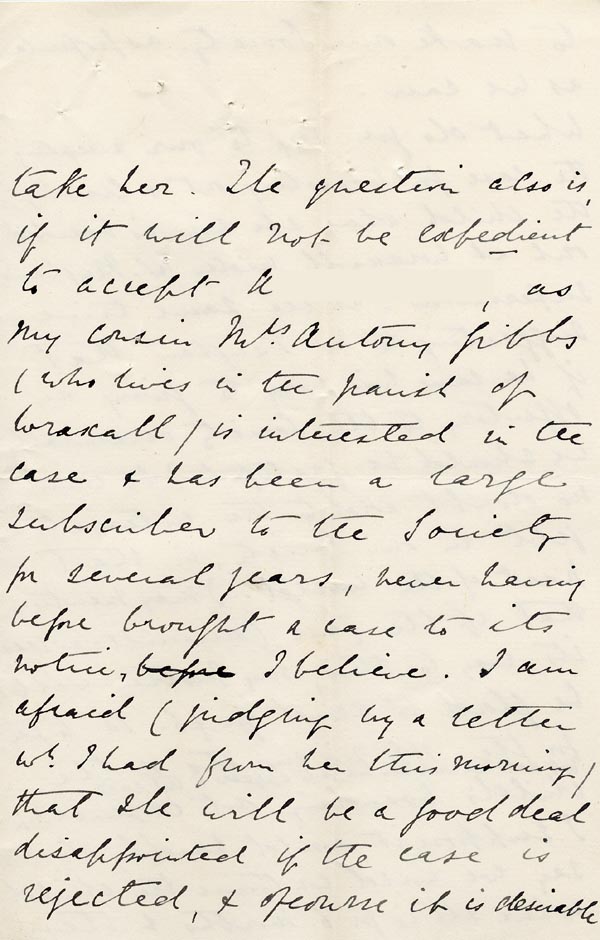 take her. The question also is,
if it will not be expedient
to accept K , as
my cousin Mrs. Antony Gibbs
(who lives in the parish of
Wraxall) is interested in the
case & has been a large
subscriber to the Society
for several years, never having
before brought a case to its
notice, before I believe. I am
afraid (judging by a letter
wh. I had from her this morning)
that she will be a good deal
disappointed if the case is
rejected, & of course it is desirable